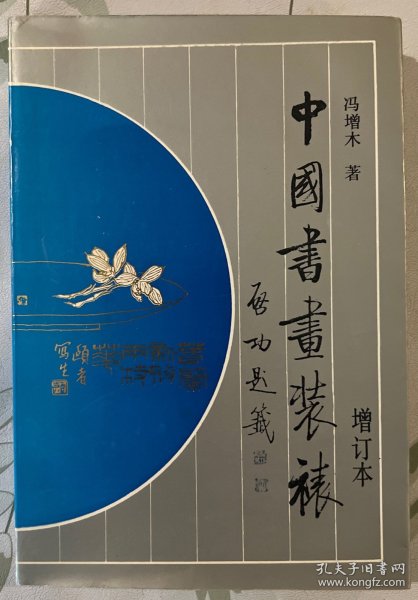 冯增木 著
中國書畫装裱
增订本
启功题签
頤者
寫生
孔夫子旧书网
www.kongfz.com